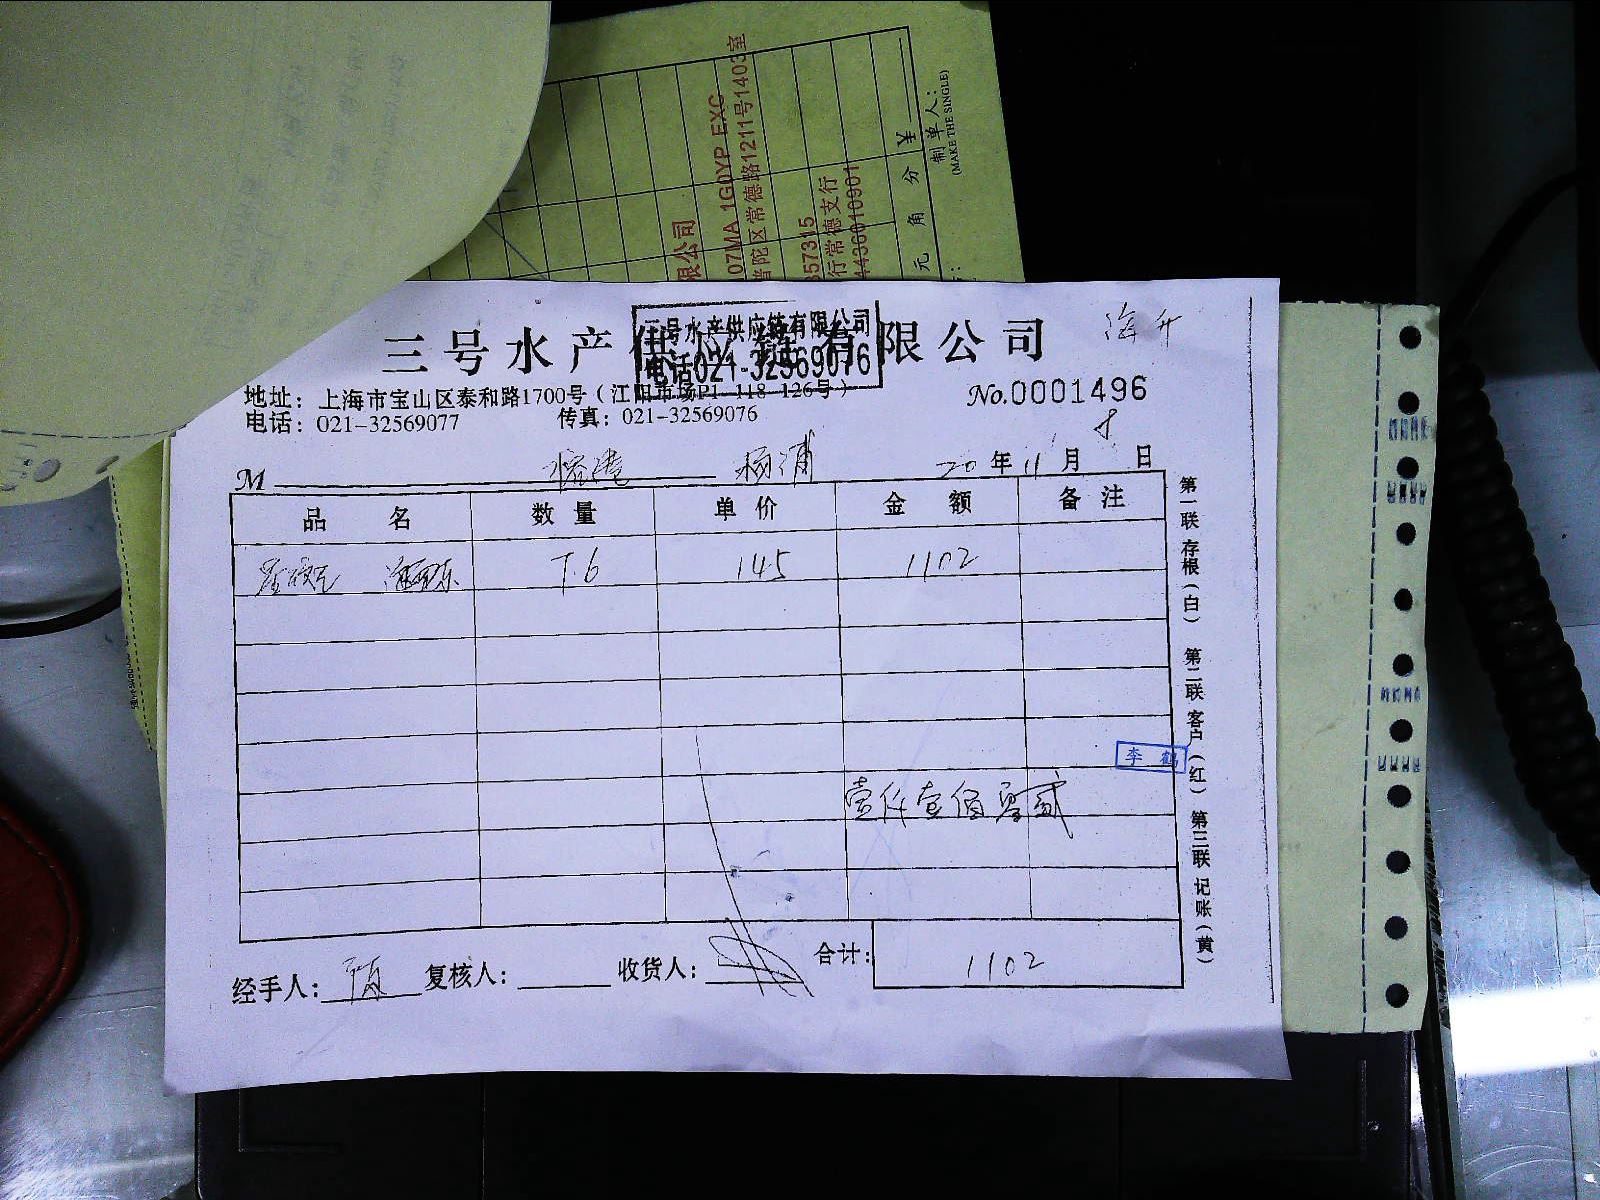 三号水产供应链有限公司
三号水产供应链有限公司
电话021-32569076
海升
地址：上海市宝山区泰和路1700号（江阳市场P1-118-126号）
No.0001496
电话：021-32569077 传真：021-32569076
M 杨浦 20年11月8日
品名 数量 单价 金额 备注
7.6 145 1102
壹仟壹佰零贰
李鹤
经手人： 复核人： 收货人： 合计： 1102
第一联 存根（白） 第二联 客户（红） 第三联 记账（黄）
限公司
07MA 1G0YP EXC
普陀区常德路1211号1403室
357315
行常德支行
44360010901
元角分 ¥
制单人：
(MAKE THE SINGLE)